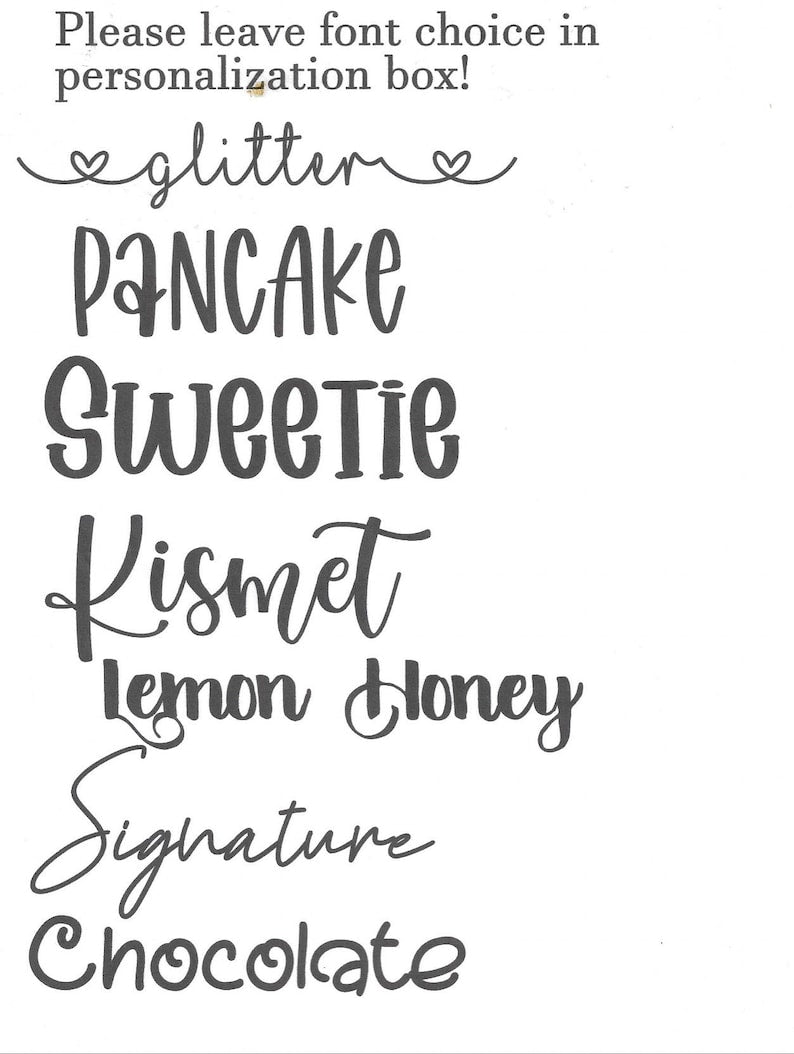 Please leave font choice in
personalization box!
glitter
PANCAKE
Sweetie
Kismet
Lemon Honey
Signature
Chocolate